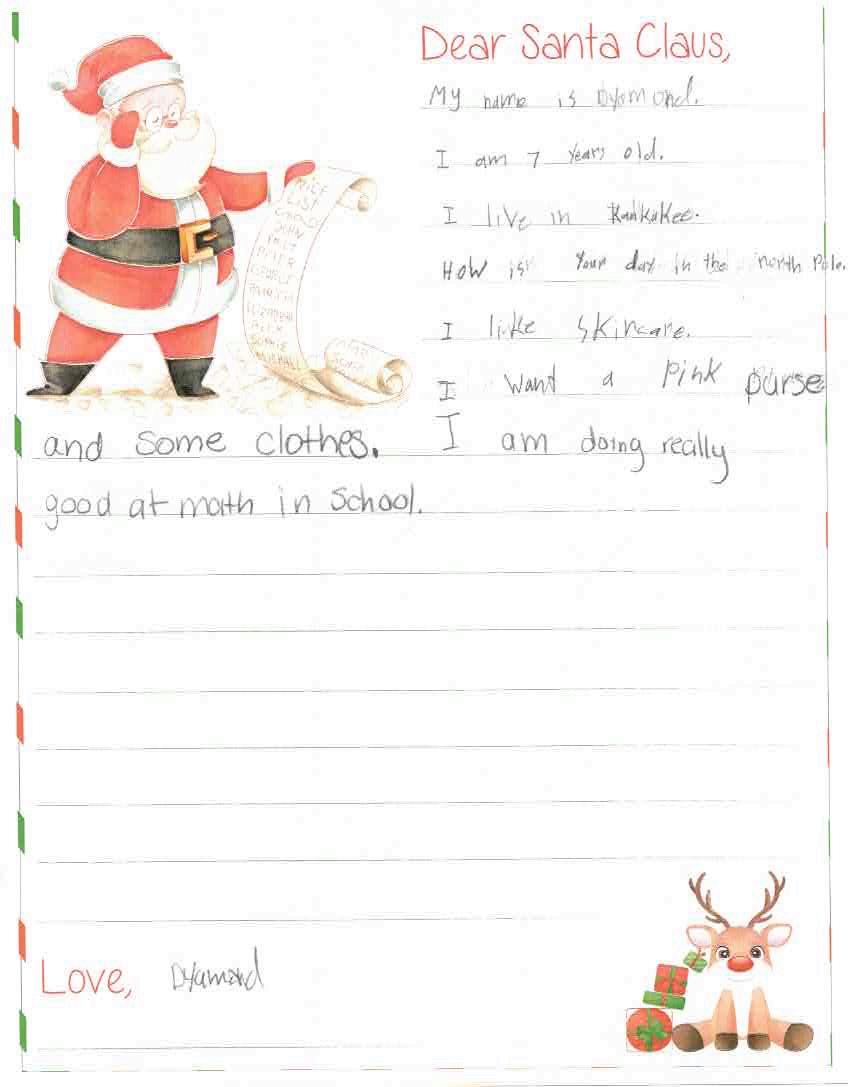 Dear Santa Claus,
My name is Dyomond.
I am 7 years old.
I live in Kankakee.
How is your day in the north Pole.
I like skincare.
I want a pink purse
and some clothes. I am doing really
good at math in school.
NICE
LIST
JOHN
PETER
Love, Dyamond